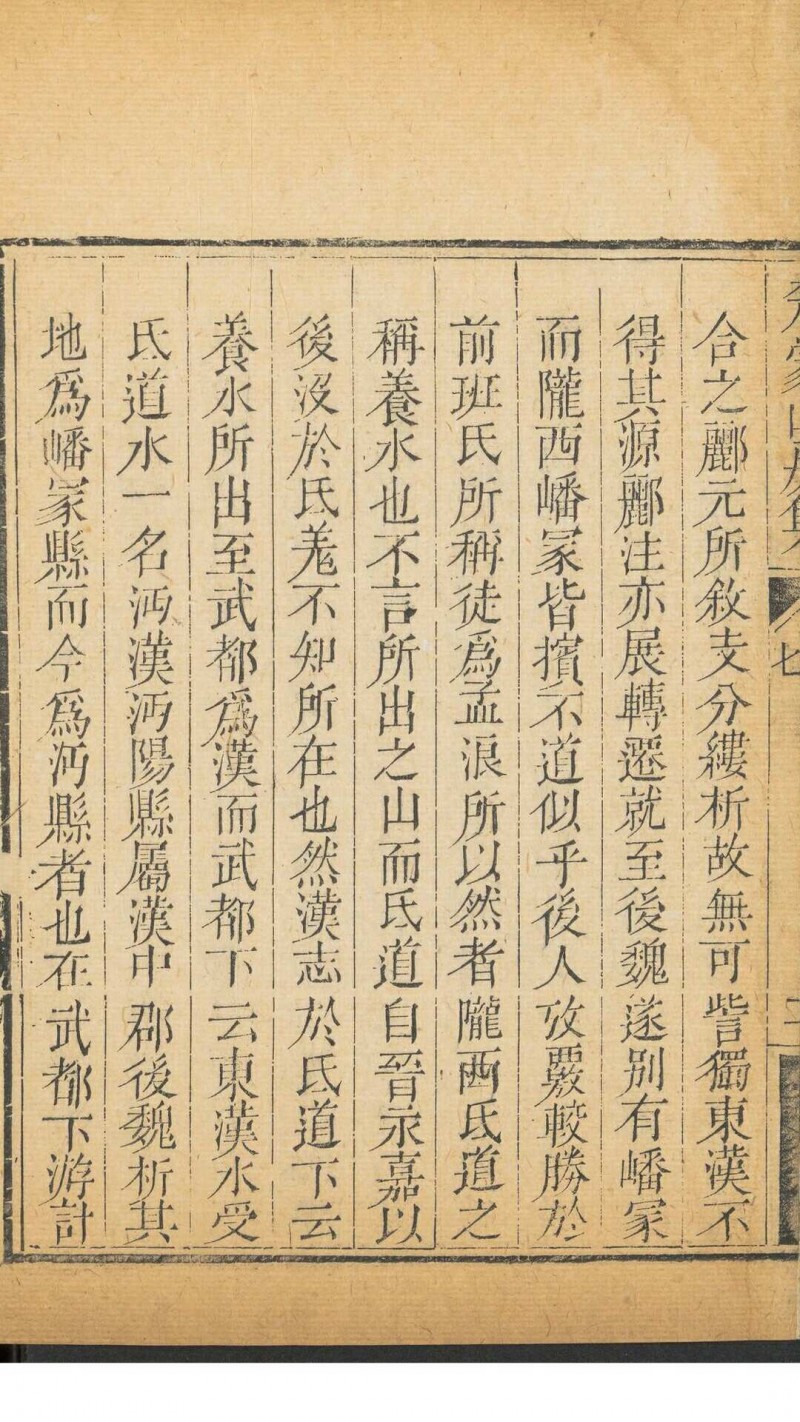 合之酈元所敘支分縷析故無可訾獨東漢不
得其源酈注亦展轉遷就至後魏遂别有嶓冢
而隴西嶓冢皆擯不道似乎後人攷覈較勝於
前班氏所稱徒爲孟浪所以然者隴西氐道之
稱養水也不言所出之山而氐道自晉永嘉以
後没於氐羌不知所在也然漢志於氐道下云
養水所出至武都爲漢而武都下云東漢水受
氐道水一名沔漢沔陽縣屬漢中郡後魏析其
地爲嶓冢縣而今爲沔縣者也在武都下游計